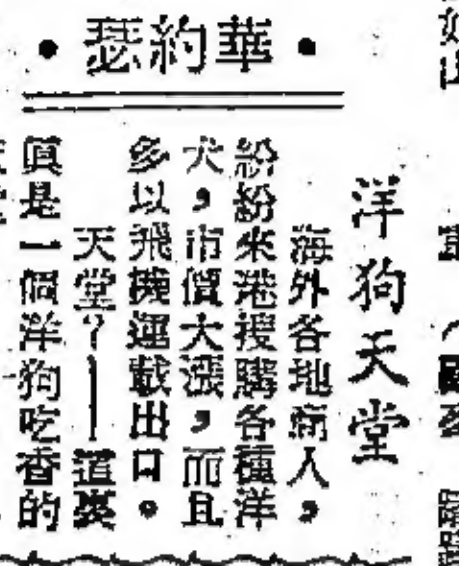 ・瑟約華・
洋狗天堂
海外各地商人，
紛紛來港搜購各種洋
犬，市價大漲，而且
多以飛機運載出口。
天堂？——這裏
眞是一個洋狗吃香的